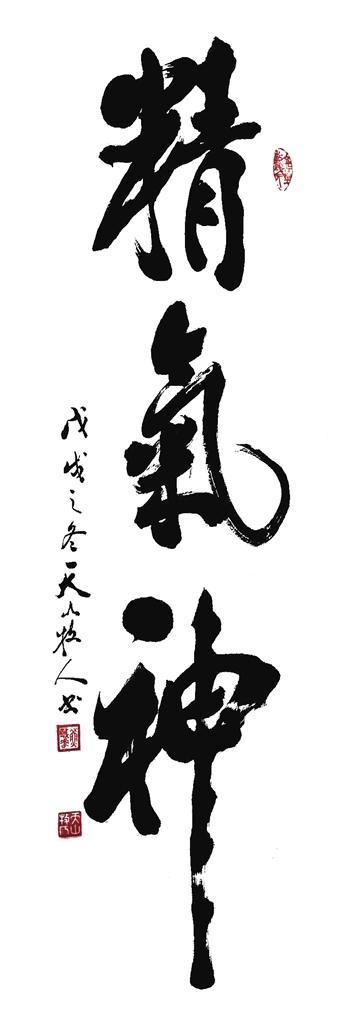 精氣神
戊戌之冬天山牧人书
天山牧人